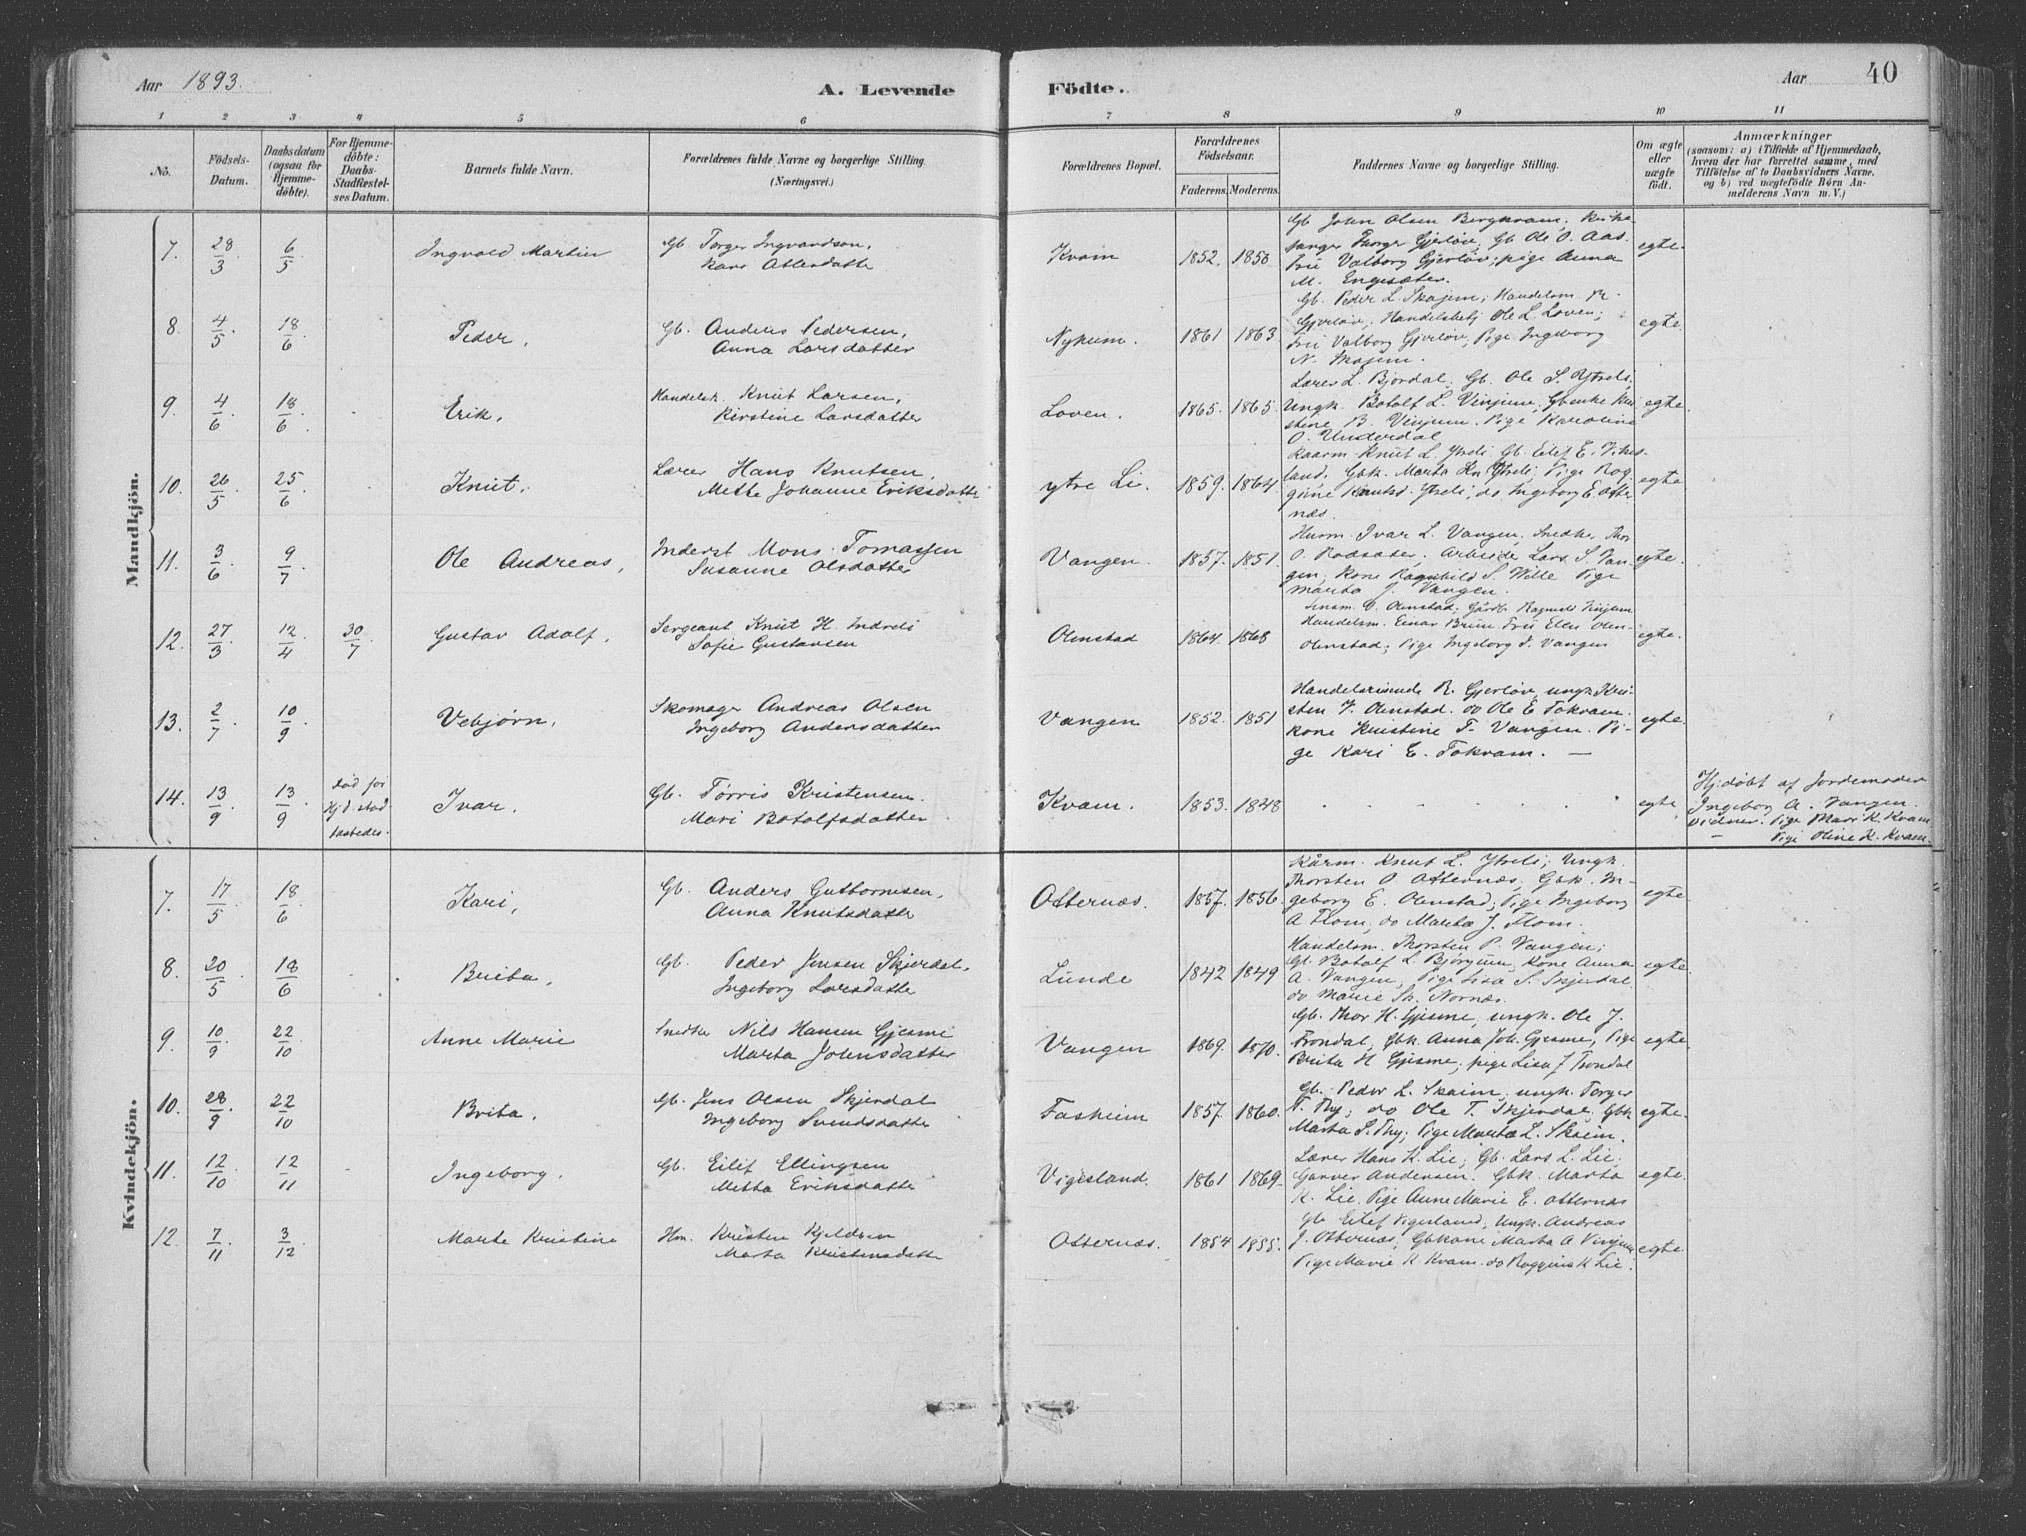 Aar 1893.
A. Levende
Födte.
Aar
40
1 2 3 4 5 6 7 8 9 10 11
No.
Födsels-
Datum.
Daabsdatum
(ogsaa for
Hjemme-
döbte).
For Hjemme-
döbte:
Daabs-
Stadfæstel-
ses Datum.
Barnets fulde Navn.
Forældrenes fulde Navne og borgerlige Stilling.
(Næringsvei.)
Forældrenes Bopæl.
Forældrenes
Födselsaar.
Faderens. Moderens.
Faddernes Navne og borgerlige Stilling.
Om ægte
eller
uægte
födt.
Anmærkninger
(saasom: a) i Tilfælde af Hjemmedaab,
hvem der har forrettet samme, med
Tilföielse af to Daabsvidners Navne,
og b) ved uægtefödte Börn An-
melderens Navn m. V.)
Mandkjön.
7. 28/3 6/5 Ingvald Martin
Gb. Torger Ingvardson,
Kari Ottersdatter
Kvam 1852. 1850
Gb John Olsen Bergkvam, Kirke-
sanger Gjerløv, Gb Ole O. Aas.
Fru Valborg Gjerløv, pige Anna
M. Engesæter.
egte.
8. 4/5 18/6 Peder,
Gb. Anders Pedersen,
Anna Larsdatter
Nyheim. 1861 1863
Gb. Peder L. Skajem; Handelsm R.
Gjerløv, Handelsbetj Ole L. Loven;
Fru Valborg Gjerløv, Pige Ingeborg
N. Skajem.
egte.
9. 4/6 18/6 Erik,
Handelsk. Knut Larsen,
Kirstine Larsdatter
Loven. 1865. 1865.
Lærer L. Bjordal, Gb. Ole S. Ytreli,
Ungk. Botolf L. Vinjum, Gbenke Kri-
stine B. Vinjum. Pige Karoline
O. Underdal
egte.
10. 26/5 25/6 Knut,
Lærer Hans Knutsen,
Mette Johanne Eriksdatte
ytre Li. 1859. 1864
Kaarm Knut L. Ytreli Gb. Eilef E. Vikes-
land, Gbk. Marta Kn Ytreli, Pige Rag-
gine Knuts. Ytreli, do Ingeborg E. Otter
næs.
egte
11. 3/6 9/7 Ole Andreas,
Inderst Mons Tomassen
Susanne Olsdatter
Vangen. 1857. 1851.
Husm. Ivar L. Vangen, Snedke. Thor
O. Rodsæter, Arbeide Lars S. Van-
gen, Kone Ragnhild S. Wille Pige
Marta J. Vangen.
egte.
12. 27/3 12/4 30/7 Gustav Adolf,
Sergeant Knut H. Indreli
Sofie Gustavsen
Olmstad 1864. 1868
Lensm. O. Olmstad; Gårdb Ragnvald Vinjum
Handelsm. Einar Brun Fru Ellen Olm-
Olmstad; Pige Ingeborg J. Vangen
egte.
13. 2/7 10/9 Vebjørn,
Skomager Andreas Olsen
Ingeborg Andersdatter
Vangen 1852. 1851
Handelsreisende R. Gjerløv, ungk Kri-
sten J. Olmstad. do Ole E Tokvam.
Kone Kristine T. Vangen. Pi-
ge Kari E. Tokvam. —
egte.
14. 13/9 13/9 død før
Hjd stad
fæstedes. Ivar,
Gb. Tørris Kristensen.
Mari Botolfsdatter
Kvam. 1853. 1848
egte
Hj.døbt af Jordemoder
Ingeborg A. Vangen.
Vidner. Pige Mari K. Kvam
— Pige Oline K. Kvam.
Kvindekjön.
7. 17/5 18/6 Kari,
Gb. Anders Guttormsen,
Anna Knutsdatte
Otternæs. 1857. 1856
Kårm. Knut L. Ytreli; Ungk.
Thorsten O Otternæs, Gbk. In-
geborg E. Olmstad; Pige Ingeborg
A Flom, do Marta J. Flom.
egte
8. 20/5 18/6 Brita,
Gb. Peder Jensen Skjerdal,
Ingeborg Larsdatte
Lunde 1842 1849
Handelsm. Thorsten P. Vangen;
Gb. Botolf L Bjørgum, Kone Anna
A. Vangen, Pige Lisa S. Skjerdal
do Marie Sh. Nornæs.
egte
9. 10/9 22/10 Anne Marie
Snedke Nils Hansen Gjesme
Marta Johnsdatter
Vangen 1869. 1870.
Gb. Thor H. Gjesme, ungk. Ole J.
Trondal; Gbk Anna Joh. Gjesme, Pige
Brita H Gjesme; pige Lisa J Trondal
egte.
10. 28/9 22/10 Brita,
Gb. Jens Olsen Skjerdal
Ingeborg Svendsdatte
Fasheim 1857. 1860.
Gb. Peder L. Skaim, ungk. Torger
T. Thy; do Ole T. Skjerdal. Gbk
Marta S. Thy; Pige Marta L. Skaim.
egte.
11. 12/10 12/11 Ingeborg.
Gb. Eilif Ellingsen
Metta Eriksdatte
Vigesland. 1861 1869.
Lærer Hans K. Lie; Gb. Lars L. Lie;
Garver Andersen. Gbk. Marta
K. Lie. Pige Anne Marie E. Otternæs
egte.
12. 7/11 3/12 Marte Kristine
Hm. Kristen Kjeldsen
Marta Kristensdatte
Otternæs. 1854 1855.
Gb. Eilef Vigesland, Ungk. Andreas
J. Otternæs; Gbkone Marta A Vinjum
Pige Marie K. Kvam. do Raggina K Lie.
egte.